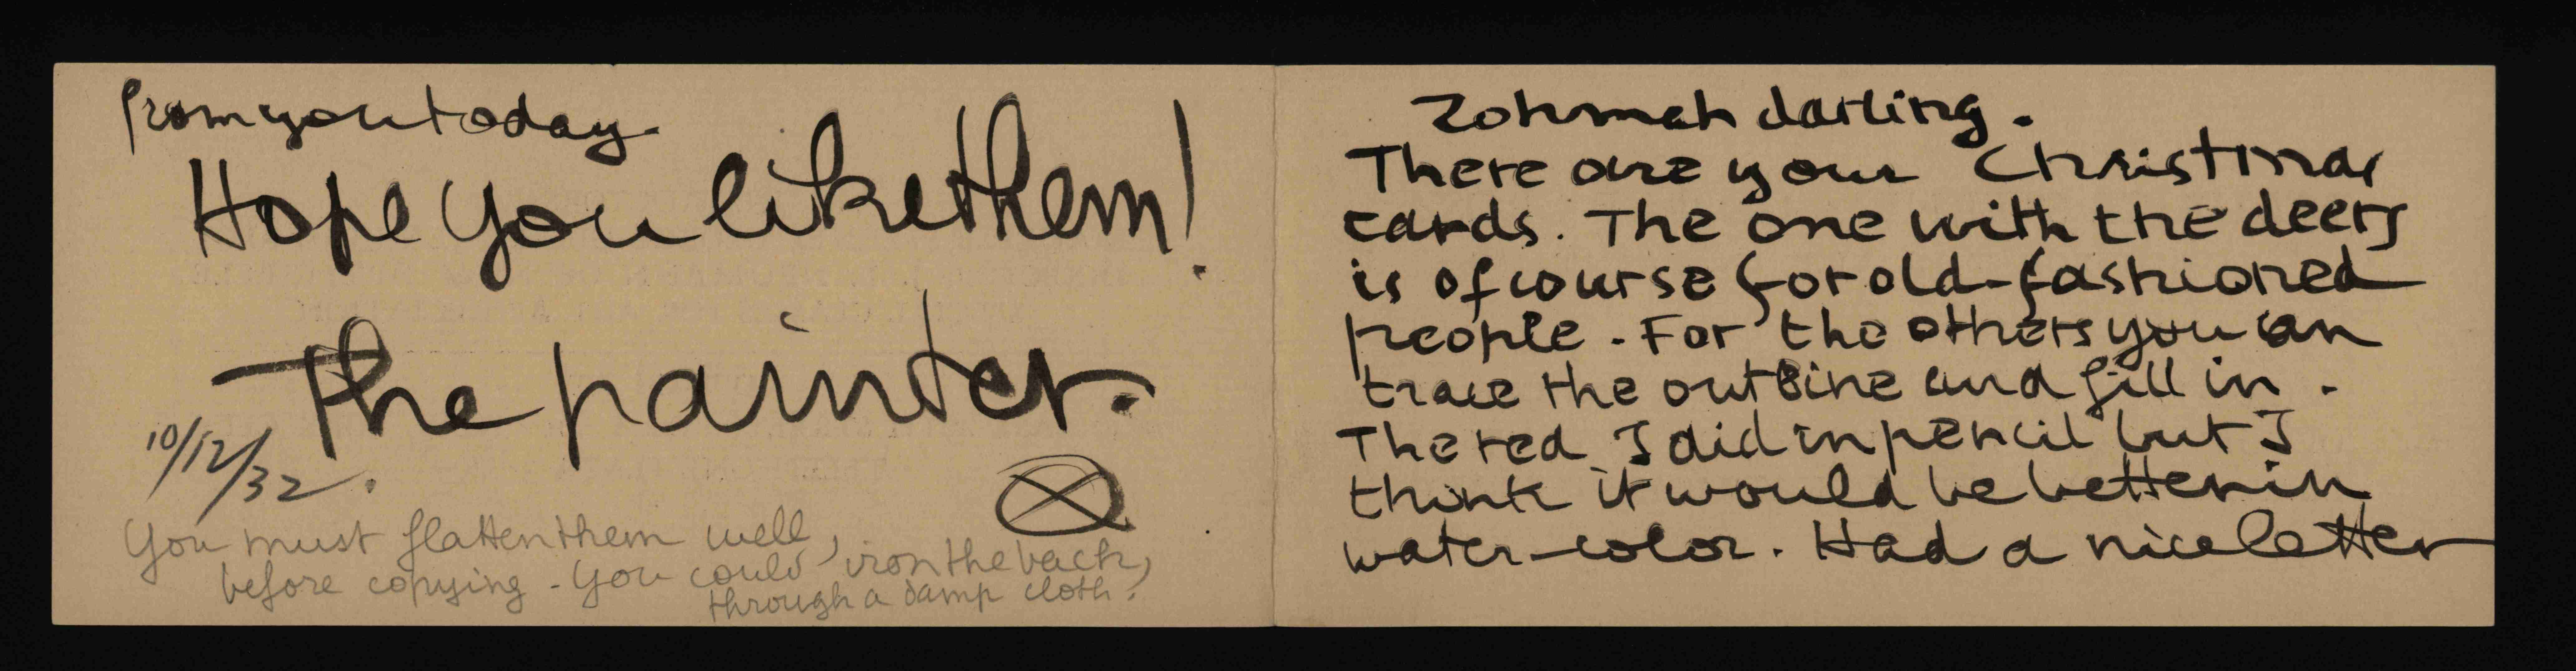 Zohmah darling.
There are your Christmas
cards. The one with the deers
is of course for old-fashioned
people. For the others you can
trace the outline and fill in.
The red I did in pencil but I
think it would be better in
water-color. Had a nice letter
from you today.
Hope you like them!
The painter.
10/12/32.
You must flatten them well,
before copying - you could iron the back,
through a damp cloth.